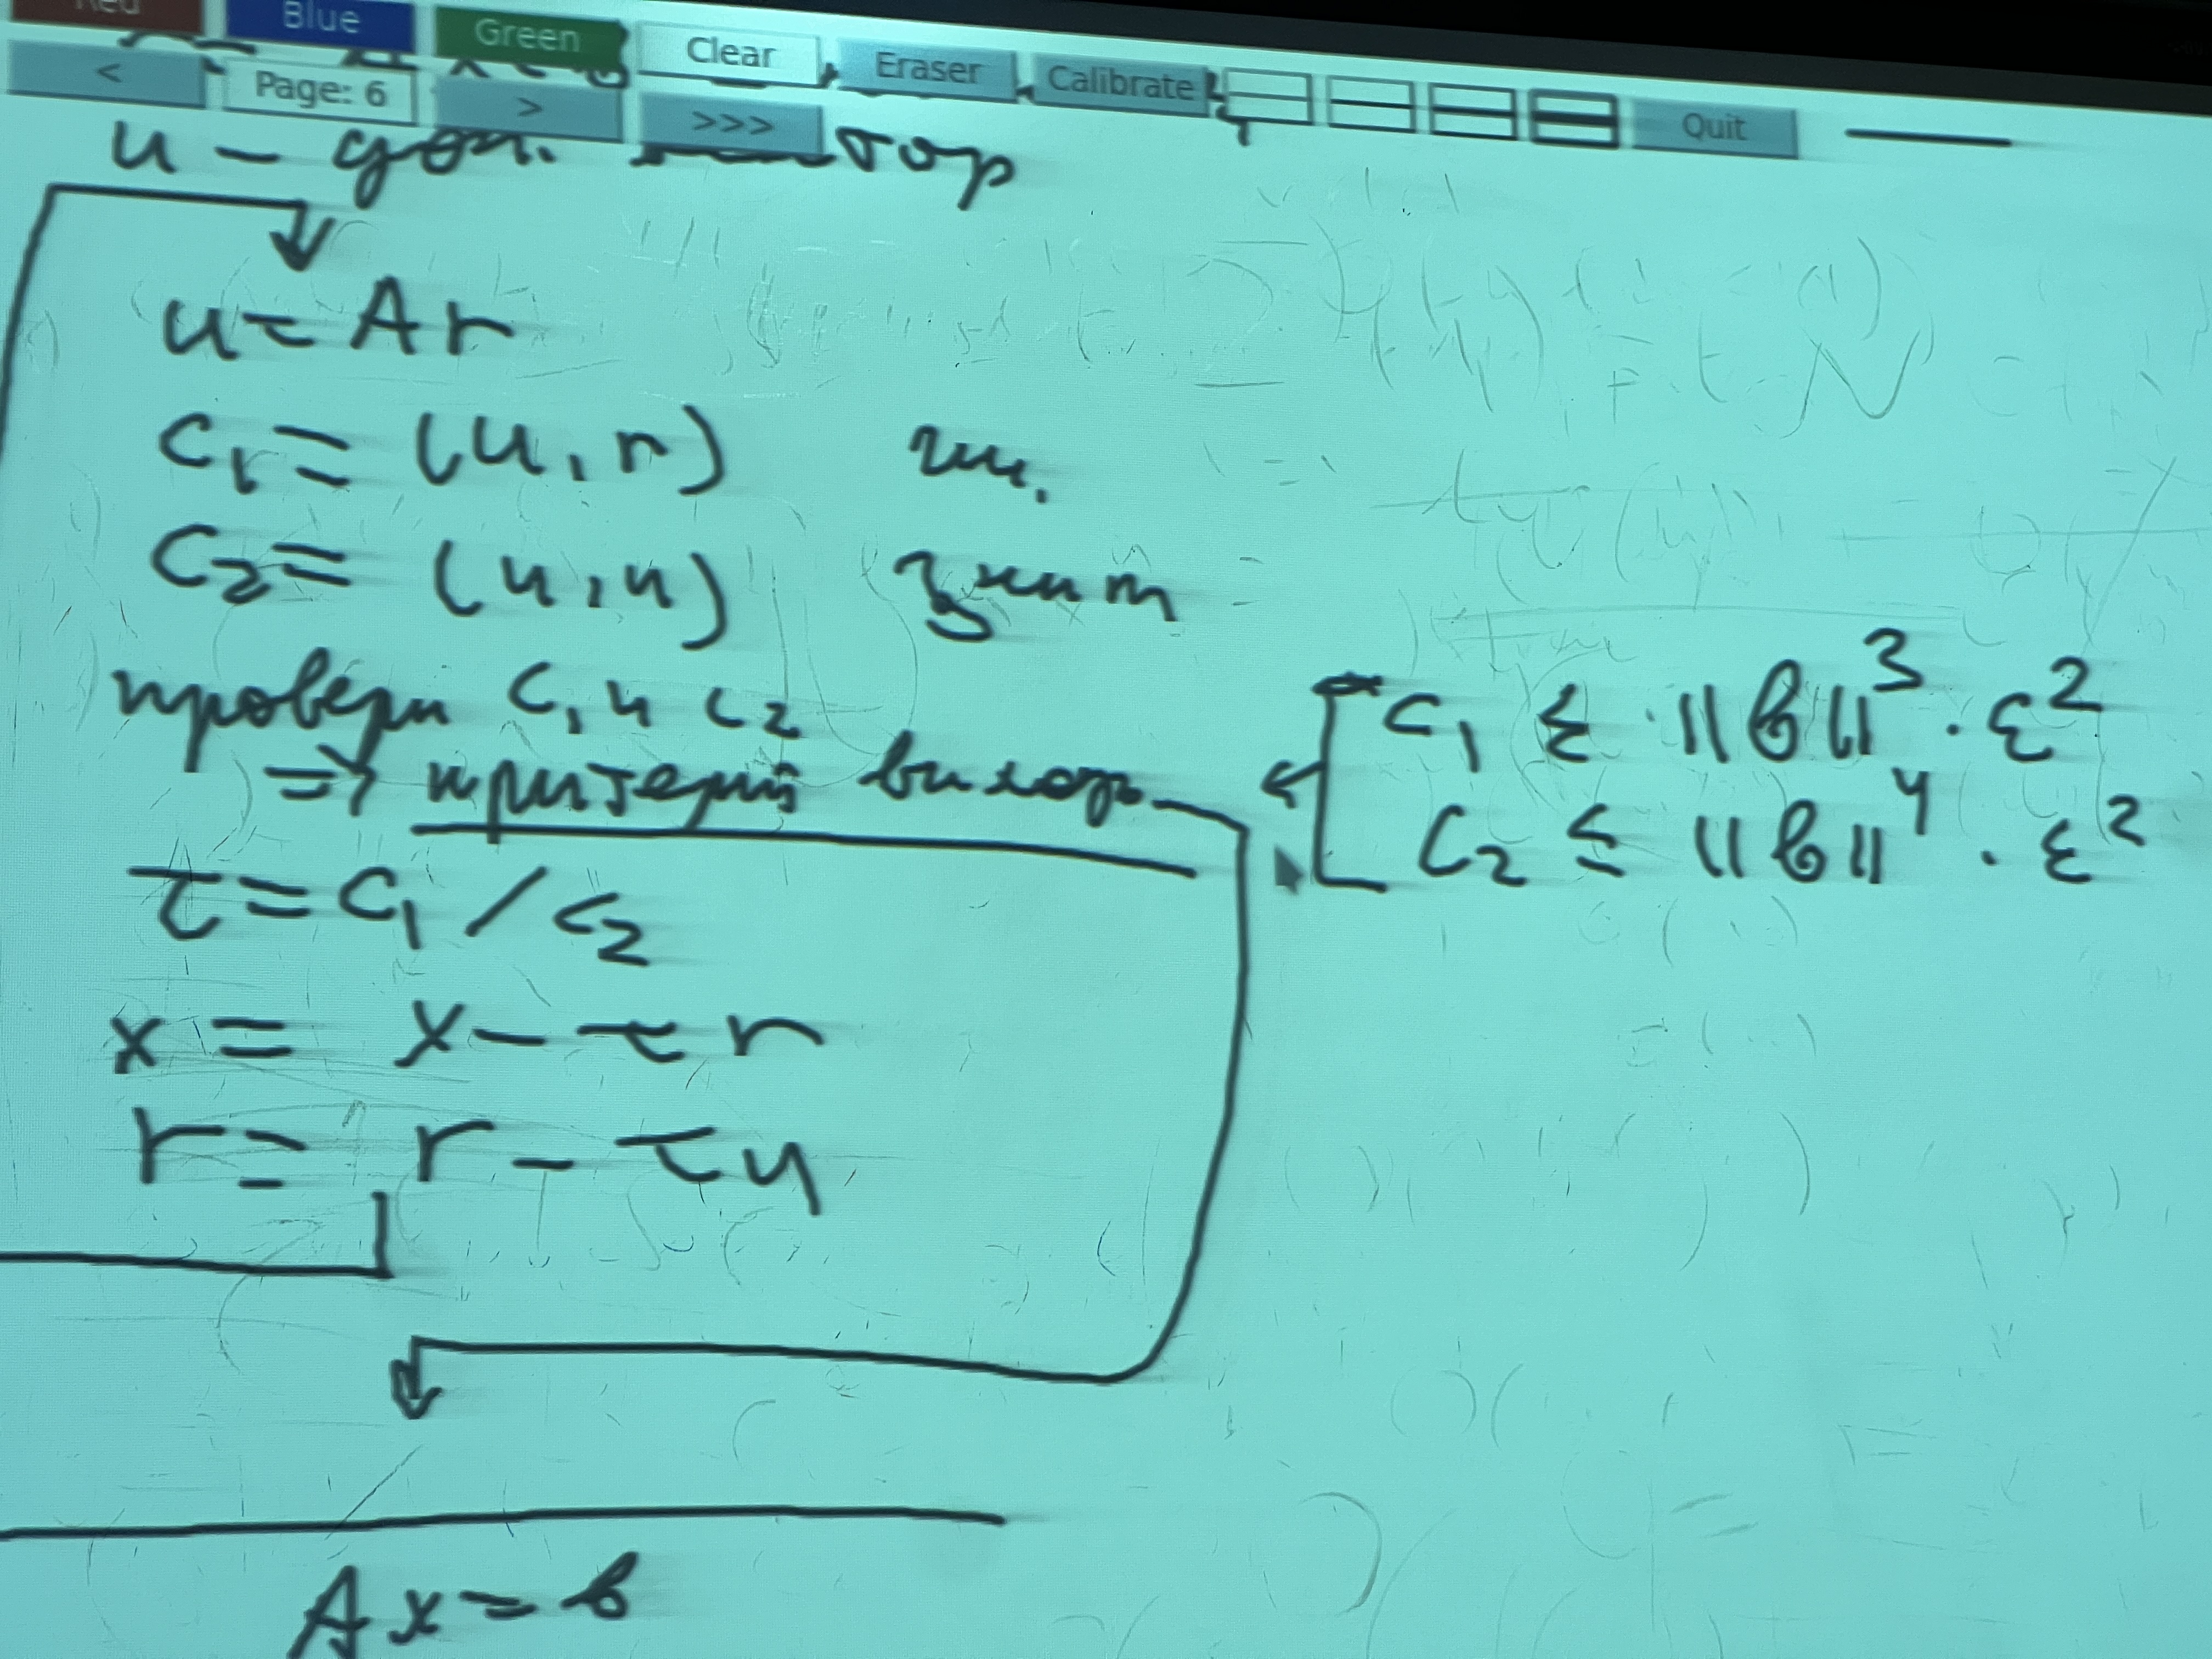 Red Blue Green Clear Eraser Calibrate Quit
< Page: 6 > >>>
u – доп. вектор
u = Ar
c₁ = (u, r) чис.
c₂ = (u, u) знам
проверки c₁ и c₂
=> критерий выхода
c₁ ≤ ·||b||³ · ε²
c₂ ≤ ||b||⁴ · ε²
τ = c₁ / c₂
x = x – τ r
r = r – τ u
Ax = b